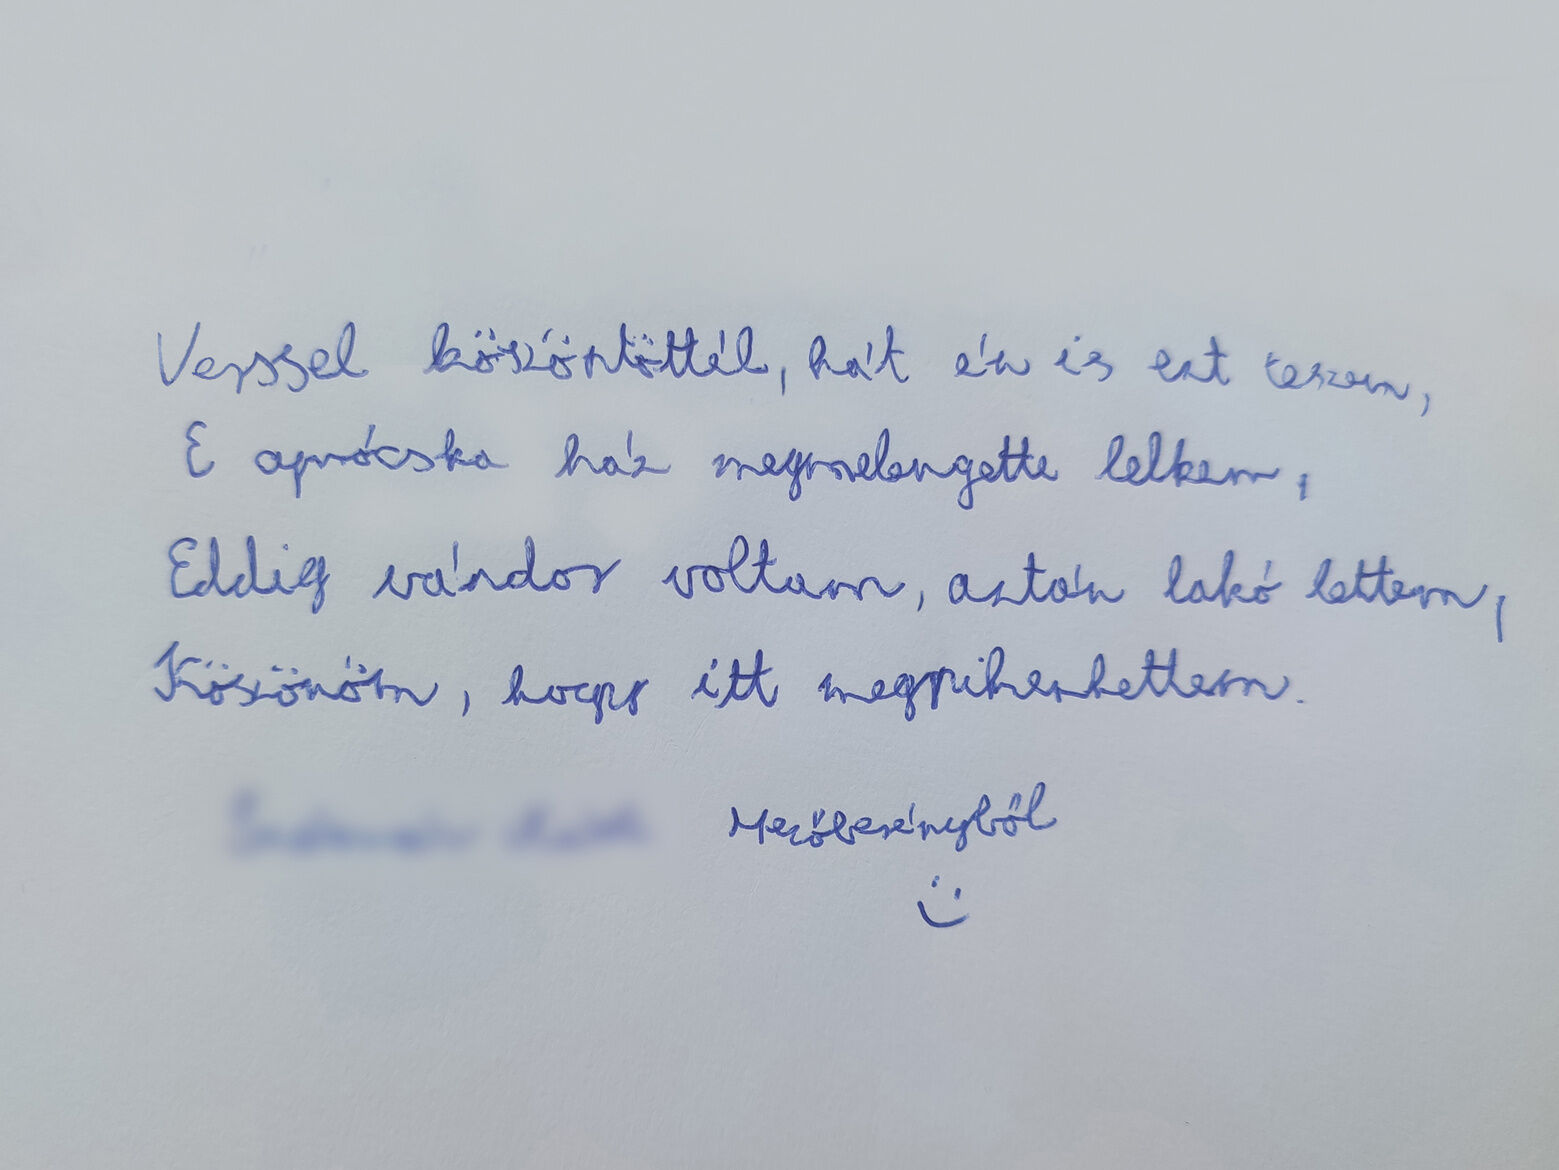 Verssel köszöntöttél, hát én is ezt teszem,
E aprócska ház megmelengette lelkem,
Eddig vándor voltam, aztán lakó lettem,
Köszönöm, hogy itt megpihenhettem.
Mezőberényből